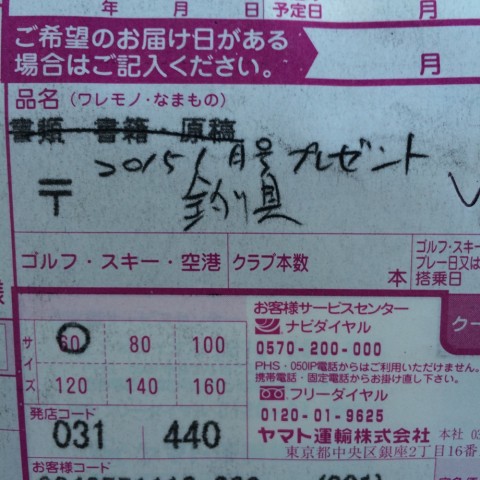 年 月 日 予定日 月
ご希望のお届け日がある
場合はご記入ください。
月
品名 (ワレモノ・なまもの)
書類 書籍・原稿
2015 1月号 プレゼント
〒 釣り具
ゴルフ・スキー・空港 クラブ本数 本
ゴルフ・スキー
プレー日又は
搭乗日
サイズ
60 80 100
120 140 160
お客様サービスセンター
ナビダイヤル
0570-200-000
PHS・050IP電話からはご利用いただけません。
携帯電話・固定電話からお掛け直し下さい。
フリーダイヤル
0120-01-9625
クー
発店コード
031 440
ヤマト運輸株式会社 本社
東京都中央区銀座2丁目16番
お客様コード